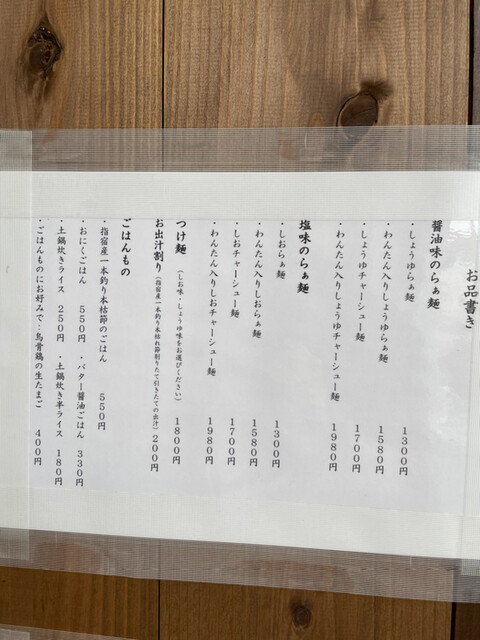 お品書き
醤油味のらぁ麺
・しょうゆらぁ麺 1300円
・わんたん入りしょうゆらぁ麺 1580円
・しょうゆチャーシュー麺 1700円
・わんたん入りしょうゆチャーシュー麺 1980円
塩味のらぁ麺
・しおらぁ麺 1300円
・わんたん入りしおらぁ麺 1580円
・しおチャーシュー麺 1700円
・わんたん入りしおチャーシュー麺 1980円
つけ麺 (しお味・しょうゆ味をお選びください) 1800円
お出汁割り (指宿産一本釣り本枯れ節削りたて引きたての出汁) 200円
ごはんもの
・指宿産一本釣り本枯節のごはん 550円
・おにくごはん 550円 ・バター醤油ごはん 330円
・土鍋炊きライス 250円 ・土鍋炊き半ライス 180円
・ごはんものにお好みで：烏骨鶏の生たまご 400円